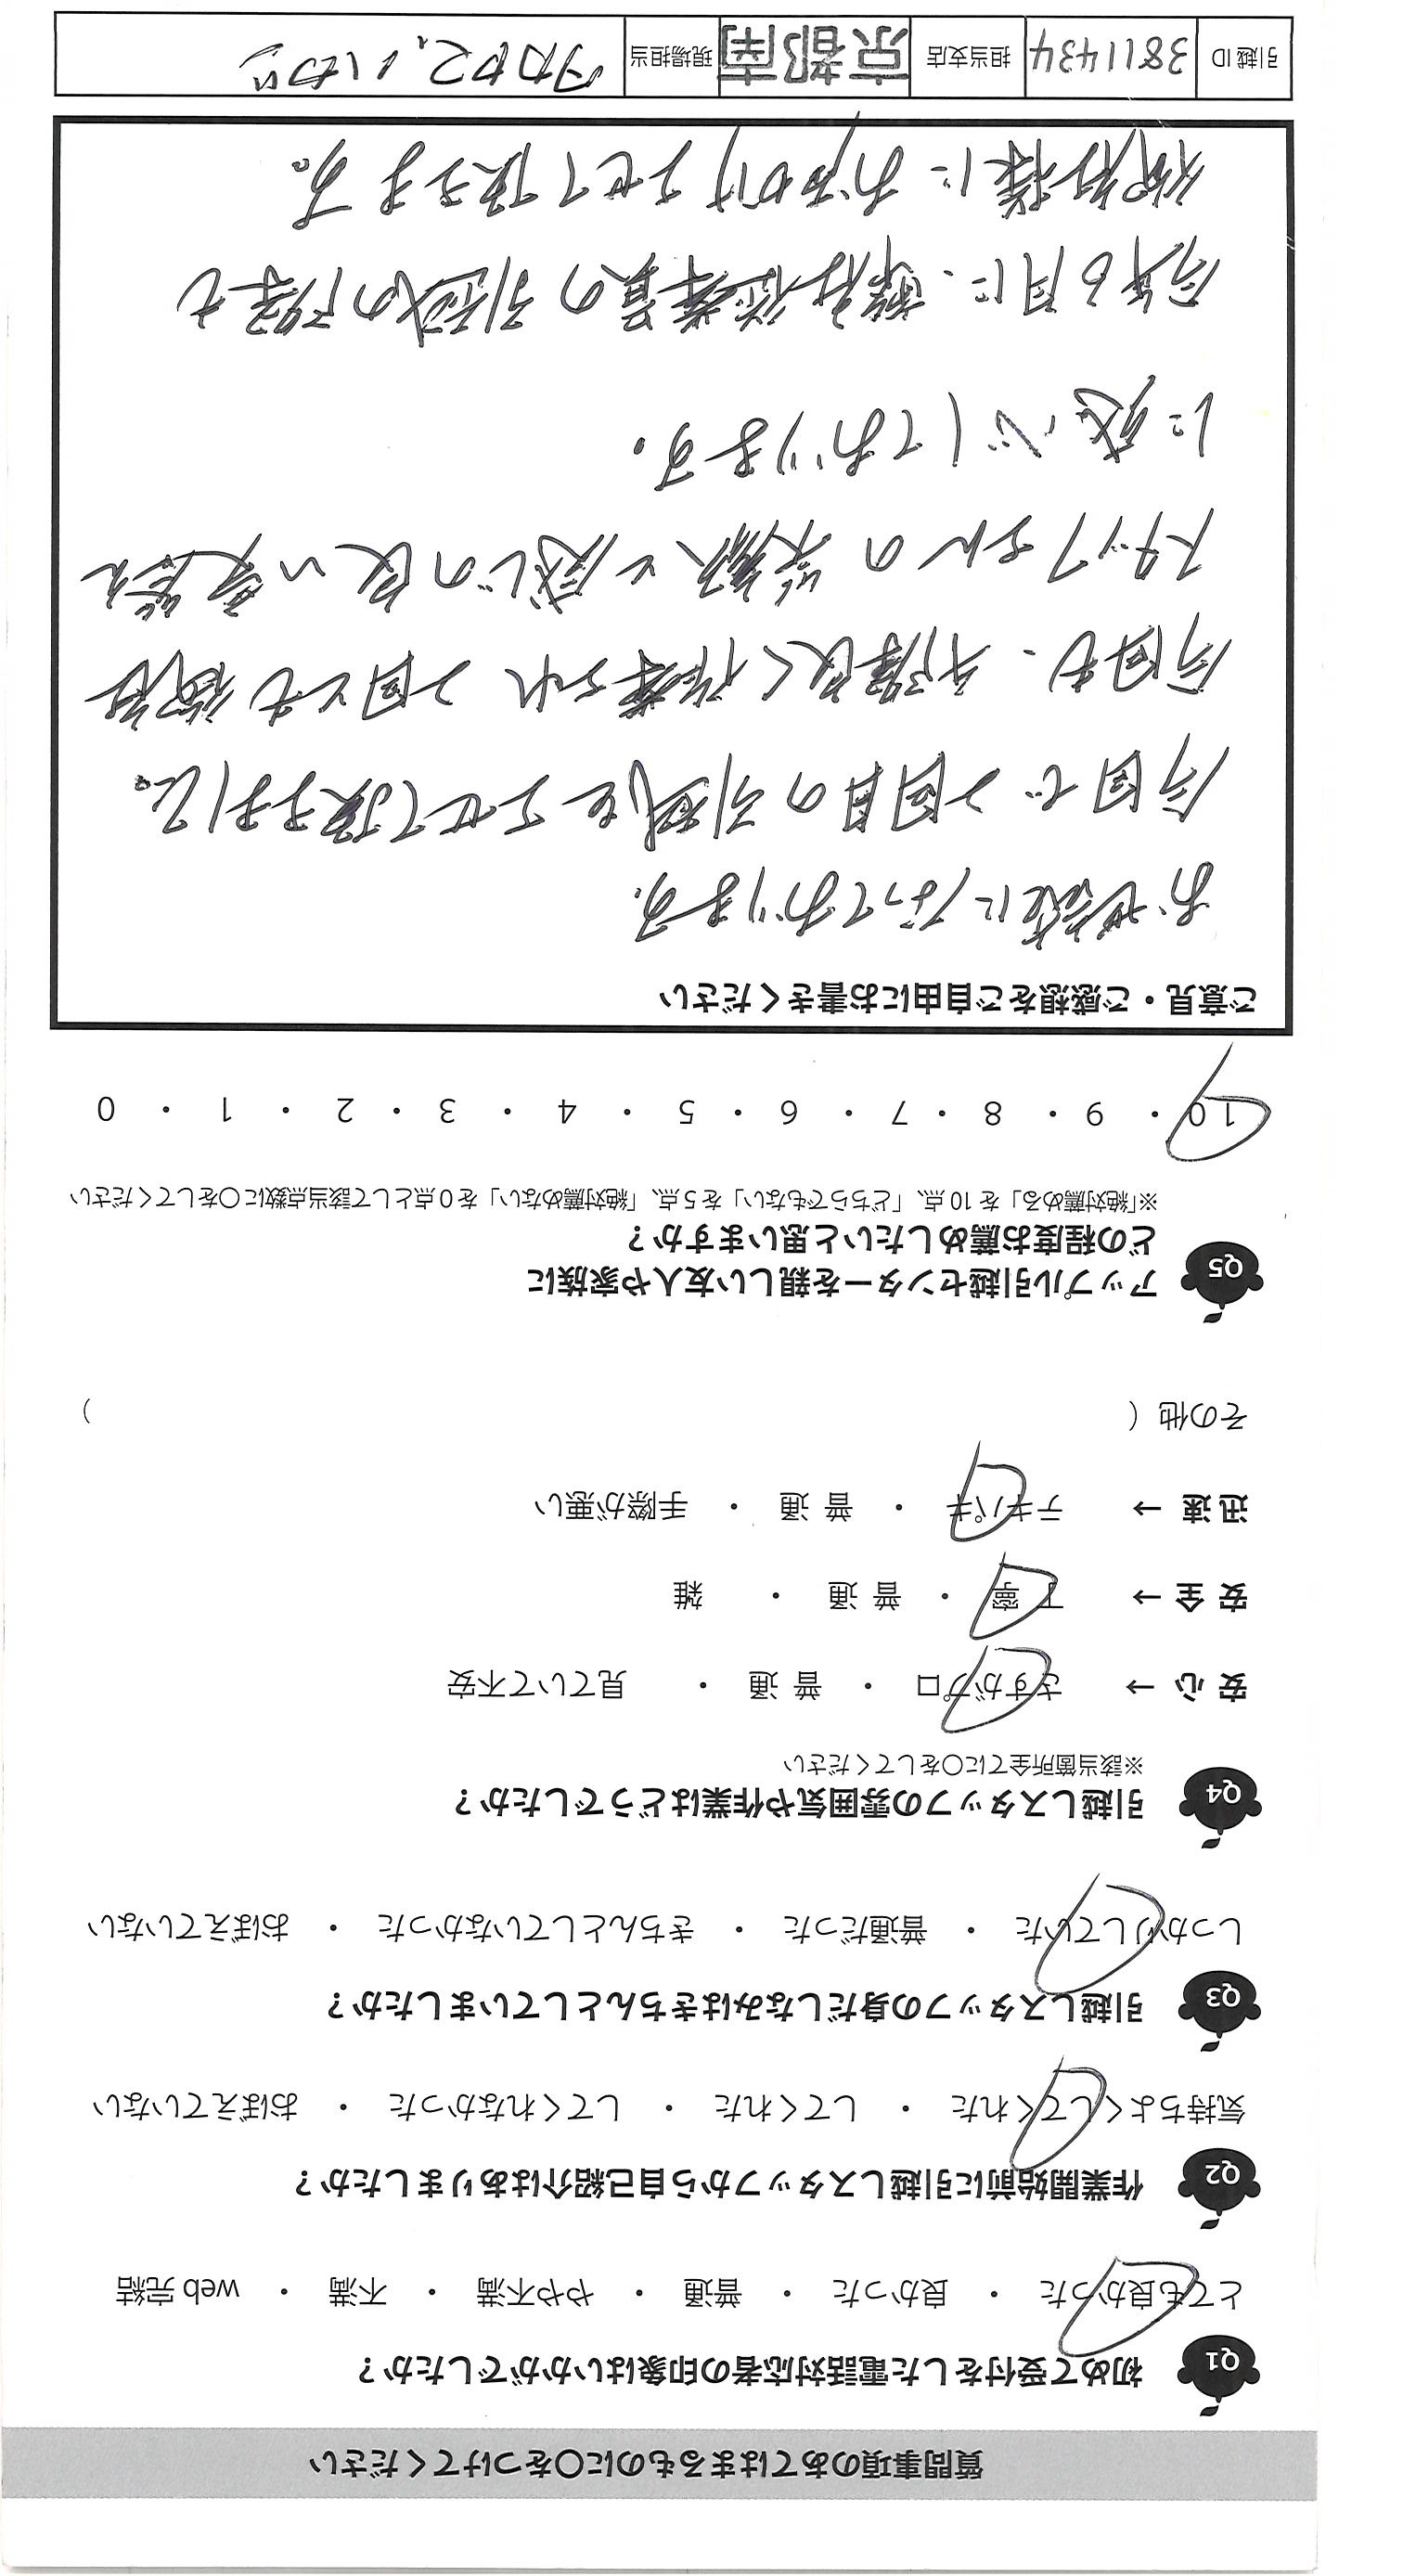 質問事項のあてはまるものに〇をつけてください
Q1 初めて受付をした電話対応者の印象はいかがでしたか？
とても良かった ・ 良かった ・ 普通 ・ やや不満 ・ 不満 ・ web 完結
Q2 作業開始前に引越しスタッフから自己紹介はありましたか？
気持ちよくしてくれた ・ してくれた ・ してくれなかった ・ おぼえていない
Q3 引越しスタッフの身だしなみはきちんとしていましたか？
しっかりしていた ・ 普通だった ・ きちんとしていなかった ・ おぼえていない
Q4 引越しスタッフの雰囲気や作業はどうでしたか？
※該当箇所全てに〇をしてください
安心 → さすがプロ ・ 普通 ・ 見ていて不安
安全 → 丁寧 ・ 普通 ・ 雑
迅速 → テキパキ ・ 普通 ・ 手際が悪い
その他（ ）
Q5 アップル引越センターを親しい友人や家族に
どの程度お薦めしたいと思いますか？
※「絶対薦める」を10点、「どちらでもない」を5点、「絶対薦めない」を0点として該当点数に〇をしてください
10 ・ 9 ・ 8 ・ 7 ・ 6 ・ 5 ・ 4 ・ 3 ・ 2 ・ 1 ・ 0
ご意見・ご感想をご自由にお書きください
お世話になっております.
今回で2回目の引越をさせて頂きました。
今回も、手際良く作業され 2回とも御社
スタッフさんの笑顔と感じの良い受答え
に感心しております.
今年6月に、弊社従業員の引越の際も
御社様にお声掛けさせて頂きます。
引越ID 3811434 担当支店 京都南 現場担当